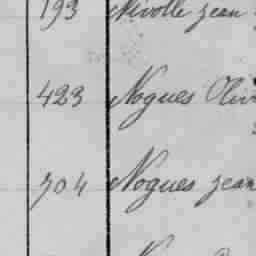 193 Nivolle jean
423 Nogues Oliv
704 Nogues jean